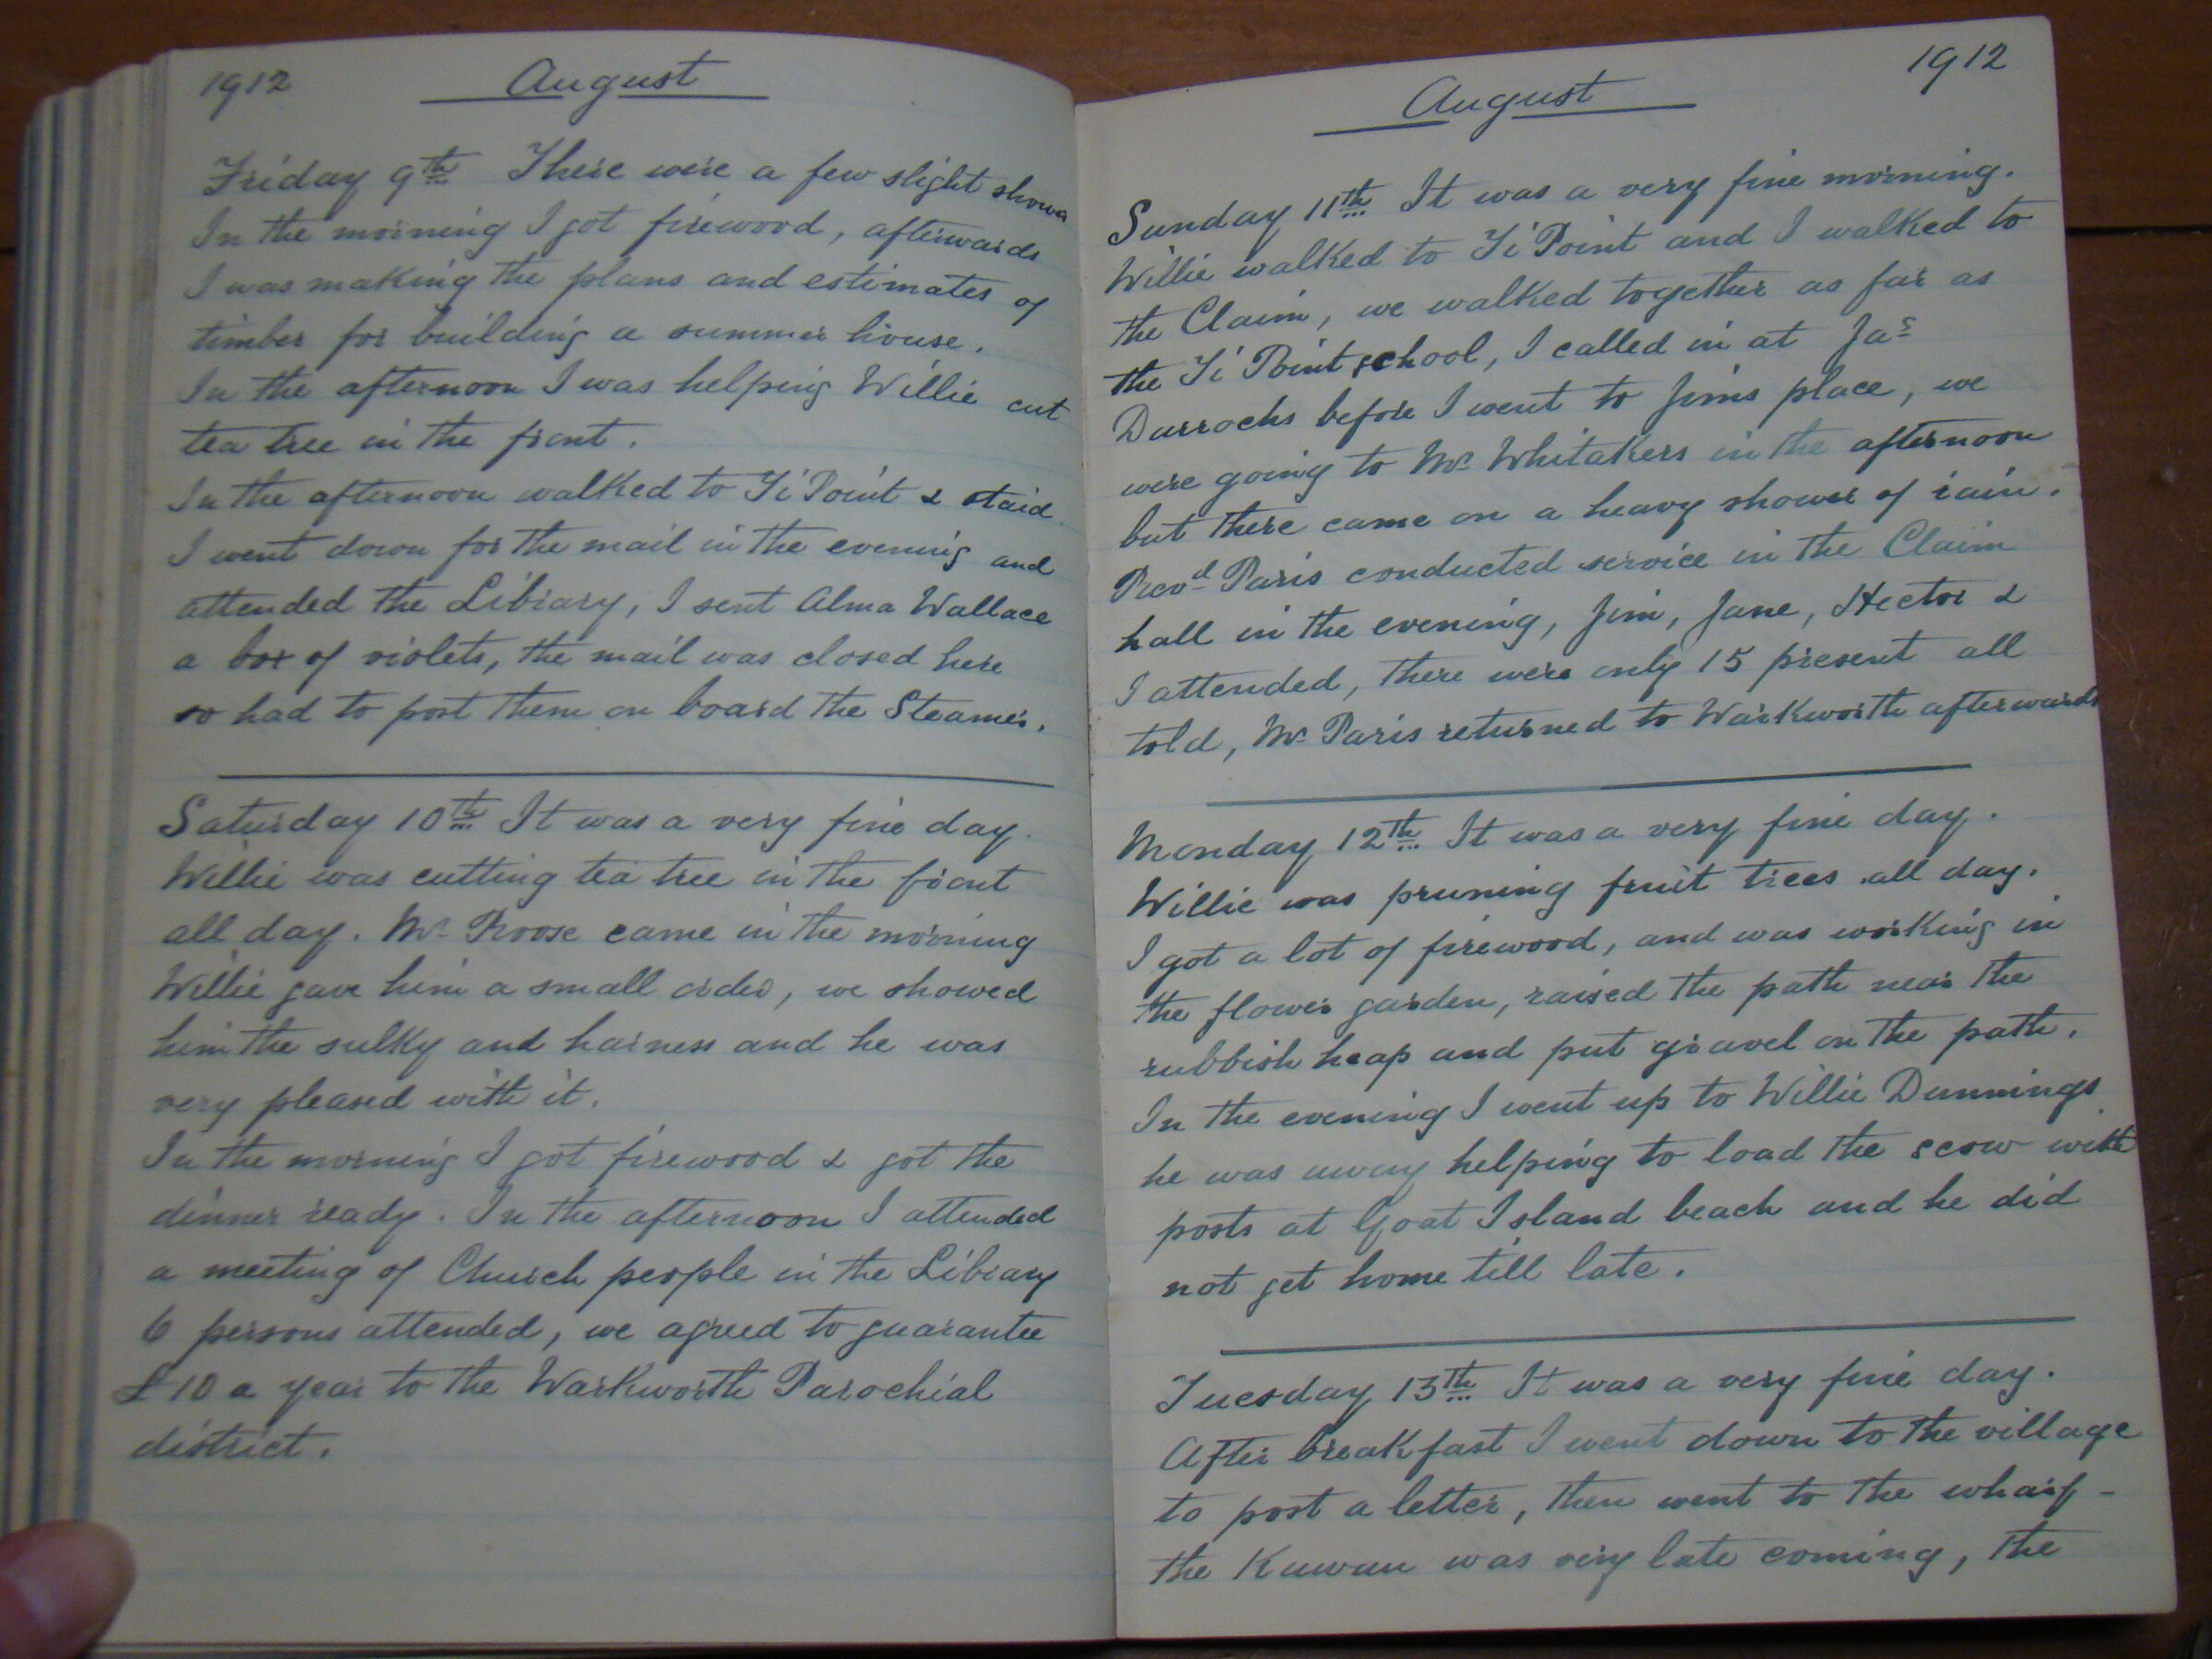 1912 August
Friday 9th There were a few slight showers
In the morning I got firewood, afterwards
I was making the plans and estimates of
timber for building a summer house.
In the afternoon I was helping Willie cut
tea tree in the front.
In the afternoon walked to Ti Point & staid
I went down for the mail in the evening and
attended the Library, I sent Alma Wallace
a box of violets, the mail was closed here
so had to post them on board the Steamer.
Saturday 10th It was a very fine day.
Willie was cutting tea tree in the front
all day. Mr Roose came in the morning
Willie gave him a small order, we showed
him the sulky and harness and he was
very pleased with it.
In the morning I got firewood & got the
dinner ready. In the afternoon I attended
a meeting of Church people in the Library
6 persons attended, we agreed to guarantee
£10 a year to the Warkworth Parochial
district.
August 1912
Sunday 11th It was a very fine morning.
Willie walked to Ti Point and I walked to
the Claim, we walked together as far as
the Ti Point school, I called in at Jas
Darrochs before I went to Jims place, we
were going to Mr Whitakers in the afternoon
but there came on a heavy shower of rain.
Revd Paris conducted service in the Claim
hall in the evening, Jim, Jane, Hector &
I attended, there were only 15 present all
told, Mr Paris returned to Warkworth afterwards
Monday 12th It was a very fine day.
Willie was pruning fruit trees all day.
I got a lot of firewood, and was working in
the flower garden, raised the path near the
rubbish heap and put gravel on the path.
In the evening I went up to Willie Dunnings
he was away helping to load the scow with
posts at Goat Island beach and he did
not get home till late.
Tuesday 13th It was a very fine day.
After breakfast I went down to the village
to post a letter, then went to the wharf -
the Kawau was very late coming, the